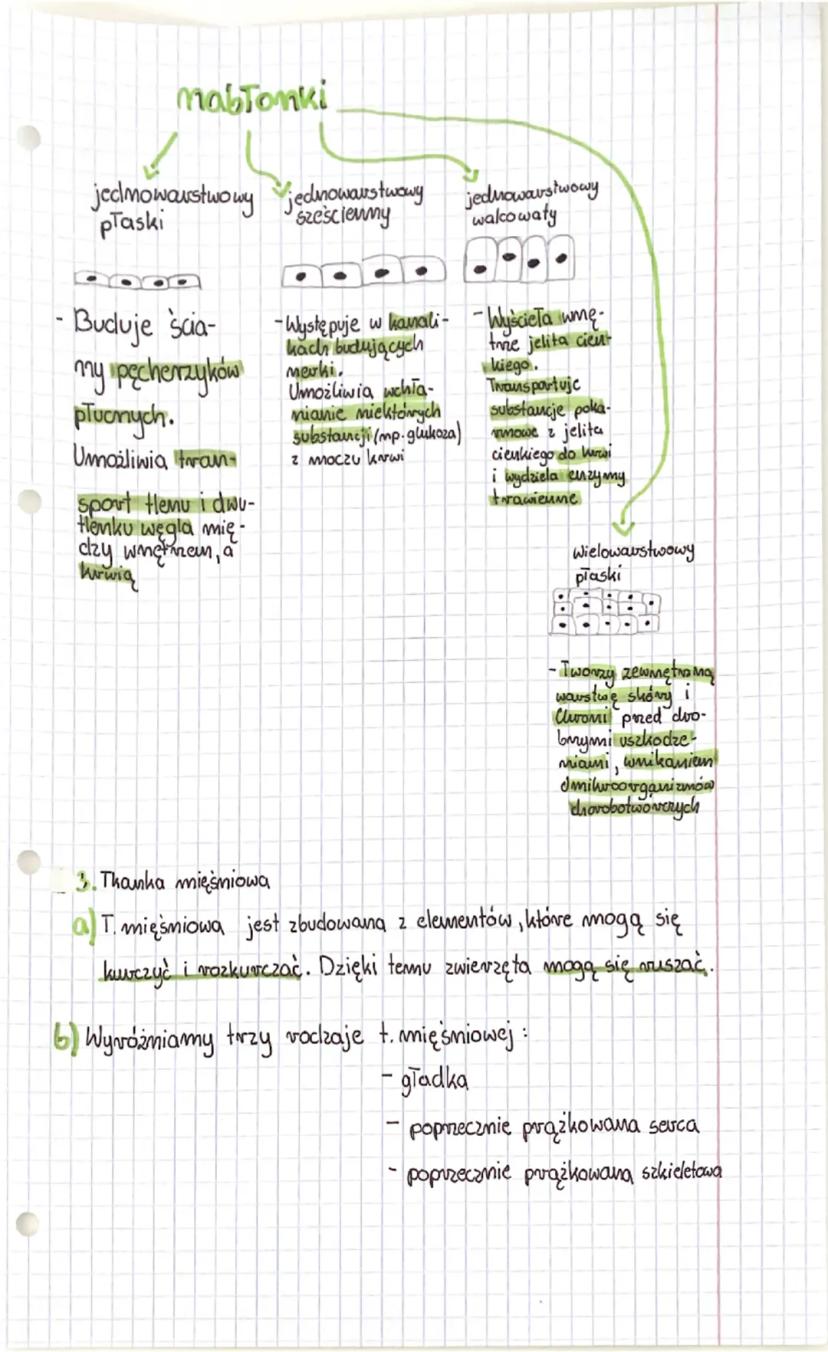 nabłonki
jednowarstwowy
płaski
- Buduje ścia-
ny pęcherzyków
płucnych.
Umożliwia tran-
sport tlenu i dwu-
tlenku węgla mię-
dzy wnętrzem, a
krwią
jednowarstwowy
sześcienny
- Występuje w kanali-
kach budujących
nerki.
Umożliwia wchła-
nianie niektórych
substancji (np. glukoza)
z moczu krwi
jednowarstwowy
walcowaty
- Wyścieła wnę-
trze jelita cien-
kiego.
Transportuje
substancje poka-
rmowe z jelita
cienkiego do krwi
i wydziela enzymy
trawienne
wielowarstwowy
płaski
- Tworzy zewnętrzną
warstwę skóry i
Chroni przed dro-
bnymi uszkodze-
niami, wnikaniem
dmikroorganizmów
chorobotwórczych
3. Tkanka mięśniowa
a) T. mięśniowa jest zbudowana z elementów, które mogą się
kurczyć i rozkurczać. Dzięki temu zwierzęta mogą się ruszać.
b) Wyróżniamy trzy rodzaje t. mięśniowej:
- gładka
- poprzecznie prążkowana serca
- poprzecznie prążkowana szkieletowa